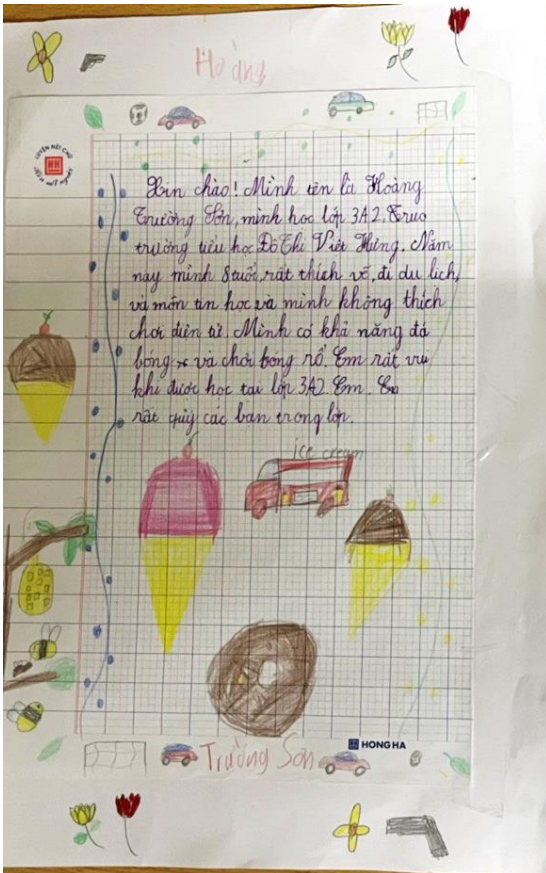 Hoàng
LUYỆN NÉT CHỮ
Xin chào! Mình tên là Hoàng
Trường Sơn, mình học lớp 3A2, Trườ
trường tiểu học Đô Thị Việt Hưng. Năm
nay mình 8 tuổi, rất thích vẽ, đi du lịch,
và môn tin học và mình không thích
chơi điện tử. Mình có khả năng đá
bóng và chơi bóng rổ. Em rất vui
khi được học tại lớp 3A2. Em. Em
rất quý các bạn trong lớp.
ice cream
HONG HA
Trường Sơn